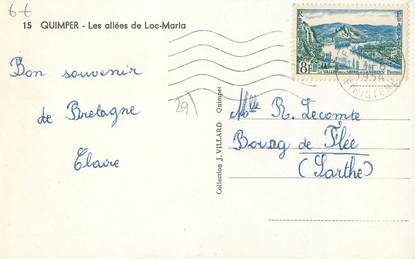 6€
15 QUIMPER - Les allées de Loc-Maria
Bon souvenir
de Bretagne
Claire
29
Collection J. VILLARD Quimper
8F
Mlle R. Lecomte
Bourg de Flée
(Sarthe)